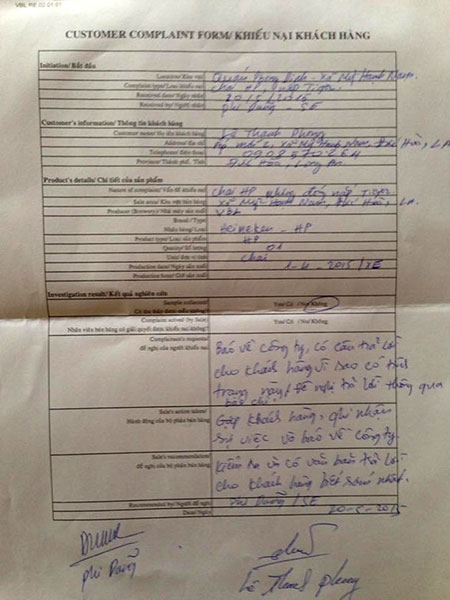 VBL RE.02.01.01
CUSTOMER COMPLAINT FORM/ KHIẾU NẠI KHÁCH HÀNG
Initiation/ Bắt đầu
Location/ Khu vực Phong Dinh - xã Mỹ Hạnh Nam
Complaint type/ Loại khiếu nại Chai HP Tiger
Received date/ Ngày nhận 2015
Received by/ Người nhận Phi Dương - SE
Customer's information/ Thông tin khách hàng
Customer name/ Họ tên khách hàng Lê Thanh Phong
Address/ Địa chỉ Ấp mới 2, xã Mỹ Hạnh Nam, Đức Hoà, L.A
Telephone/ Điện thoại
Province/ Thành phố, Tỉnh Đức Hoà, Long An
Product's details/ Chi tiết của sản phẩm
Nature of complaint/ Vấn đề khiếu nại Chai HP nhưng đóng nắp Tiger
Sale area/ Khu vực bán hàng xã Mỹ Hạnh Nam, Đức Hoà, LA.
Producer (Brewery)/ Nhà máy sản xuất VBL
Brand / Type
Nhãn hàng/ Loại Heineken - HP
Product type/ Loại sản phẩm HP
Quantity/ Số lượng 01
Unit/ Đơn vị tính Chai
Production date/ Ngày sản xuất 1-4-2015/
Production time/ Giờ sản xuất
Investigation result/ Kết quả nghiên cứu
Sample collected?
Có thu thập được mẫu không? Yes/ Có /No/ Không
Complaint solved (by Sale)
Nhân viên bán hàng có giải quyết được khiếu nại không? Yes/ Có /No/ Không
Complainant's request/
đề nghị của người khiếu nại
Báo về công ty, có câu trả lời
cho khách hàng vì sao có tình
trạng này, đề nghị trả lời thông qua
báo chí
Sale's action taken/
Hành động của bộ phận bán hàng
Gặp khách hàng, ghi nhận
sự việc và báo về công ty.
Sale's recommendation/
đề nghị của bộ phận bán hàng
Kiểm tra và có văn bản trả lời
cho khách hàng biết sớm nhất.
Recommended by/ Người đề nghị Phi Dương / SE
Date/ Ngày 20-5-2015
Phi Dương
Lê Thanh Phong